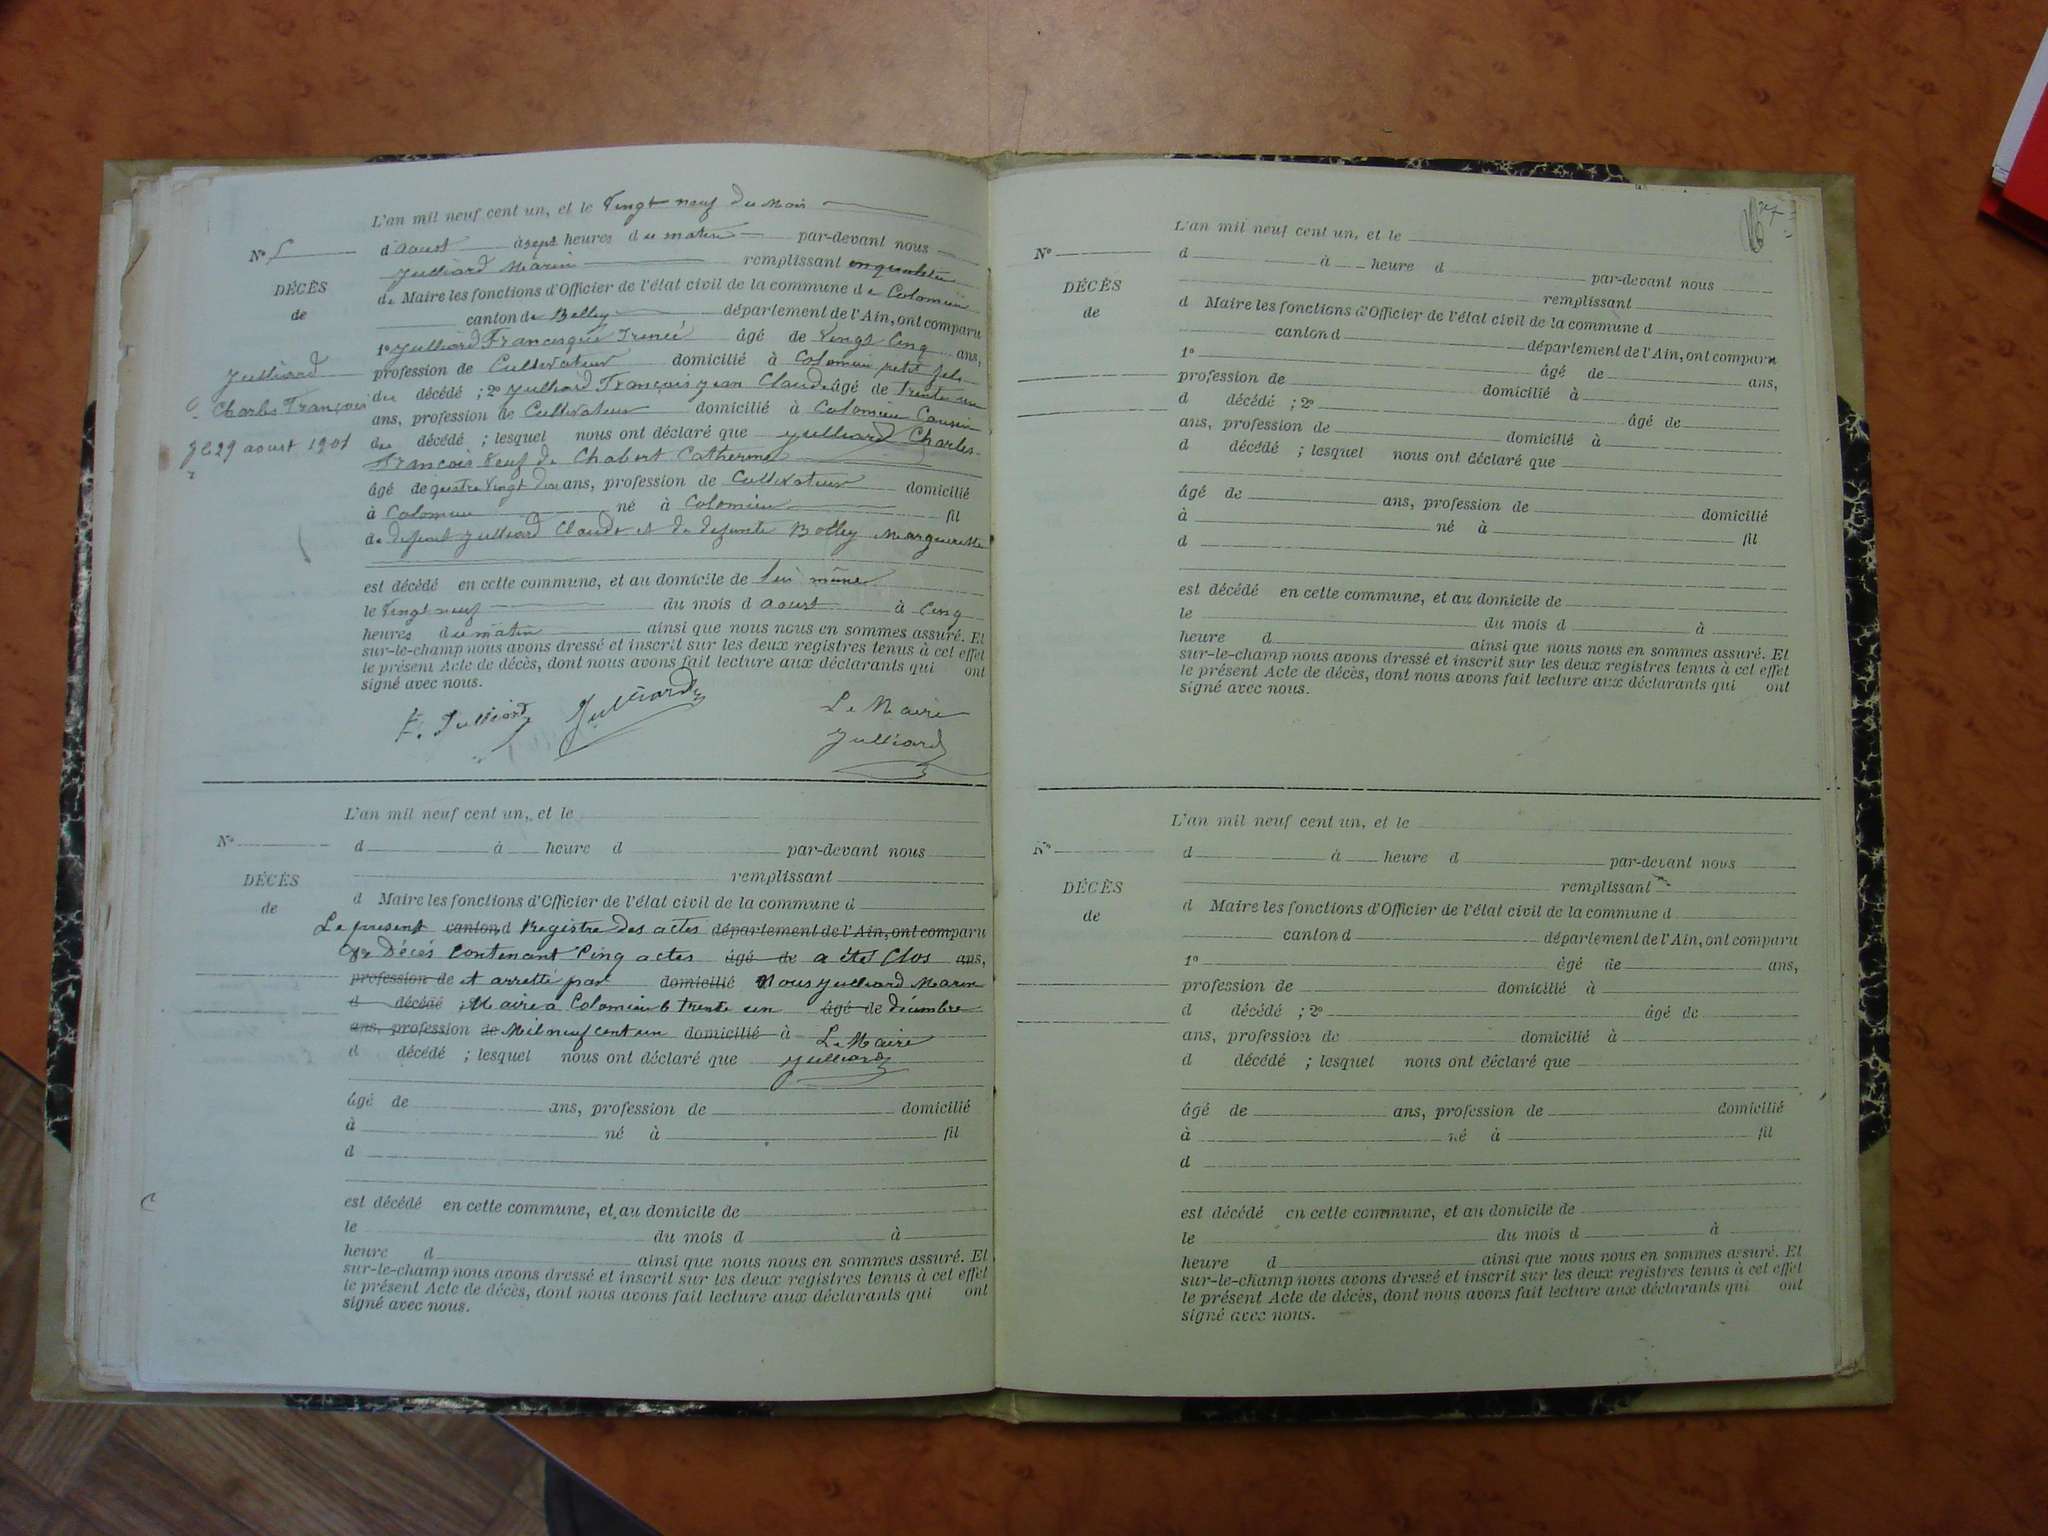 L'an mil neuf cent un, et le Vingt neuf du Mois
N° 5 d'aoust à sept heures du matin par-devant nous
Julliard Marin remplissant en qualité
DÉCÈS de Maire les fonctions d'Officier de l'état civil de la commune de Colomieu
de canton de Belley département de l'Ain, ont comparu
1° Julliard Francisque Irenée âgé de Vingt Cinq ans,
Julliard profession de Cultivateur domicilié à Colomieu petit fils
Charles François du décédé ; 2° Julliard François Jean Claude âgé de trente un
ans, profession de Cultivateur domicilié à Colomieu Cousin
29 aoust 1901 du décédé ; lesquel nous ont déclaré que Julliard Charles
François Veuf de Chabert Catherine
âgé de quatre Vingt ans, profession de Cultivateur domicilié
à Colomieu né à Colomieu fil
de defunt Julliard Claude et de defunte Bolley Marguerette
est décédé en cette commune, et au domicile de lui même
le Vingt neuf du mois d aoust à Cinq
heures du matin ainsi que nous nous en sommes assuré. Et
sur-le-champ nous avons dressé et inscrit sur les deux registres tenus à cet effet
le présent Acte de décès, dont nous avons fait lecture aux déclarants qui ont
signé avec nous.
F. Julliard Julliard Le Maire
Julliard
L'an mil neuf cent un, et le
N° d à heure d par-devant nous
DÉCÈS remplissant
de d Maire les fonctions d'Officier de l'état civil de la commune d
Le présent canton d Registre des actes département de l'Ain, ont comparu
de Décés Contenant Cinq actes âgé de a étés Clos ans,
profession de et arretté par domicilié Nous Julliard Marin
d décédé ; Maire à Colomieu le trente un âgé de décembre
ans, profession de Mil neuf cent un domicilié à Le Maire
d décédé ; lesquel nous ont déclaré que Julliard
âgé de ans, profession de domicilié
à né à fil
d
est décédé en cette commune, et au domicile de
le du mois d à
heure d ainsi que nous nous en sommes assuré. Et
sur-le-champ nous avons dressé et inscrit sur les deux registres tenus à cet effet
le présent Acte de décès, dont nous avons fait lecture aux déclarants qui ont
signé avec nous.
L'an mil neuf cent un, et le
N° d à heure d par-devant nous
DÉCÈS remplissant
de d Maire les fonctions d'Officier de l'état civil de la commune d
canton d département de l'Ain, ont comparu
1° âgé de ans,
profession de domicilié à
d décédé ; 2° âgé de
ans, profession de domicilié à
d décédé ; lesquel nous ont déclaré que
âgé de ans, profession de domicilié
à né à fil
d
est décédé en cette commune, et au domicile de
le du mois d à
heure d ainsi que nous nous en sommes assuré. Et
sur-le-champ nous avons dressé et inscrit sur les deux registres tenus à cet effet
le présent Acte de décès, dont nous avons fait lecture aux déclarants qui ont
signé avec nous.
L'an mil neuf cent un, et le
N° d à heure d par-devant nous
DÉCÈS remplissant
de d Maire les fonctions d'Officier de l'état civil de la commune d
canton d département de l'Ain, ont comparu
1° âgé de ans,
profession de domicilié à
d décédé ; 2° âgé de
ans, profession de domicilié à
d décédé ; lesquel nous ont déclaré que
âgé de ans, profession de domicilié
à né à fil
d
est décédé en cette commune, et au domicile de
le du mois d à
heure d ainsi que nous nous en sommes assuré. Et
sur-le-champ nous avons dressé et inscrit sur les deux registres tenus à cet effet
le présent Acte de décès, dont nous avons fait lecture aux déclarants qui ont
signé avec nous.